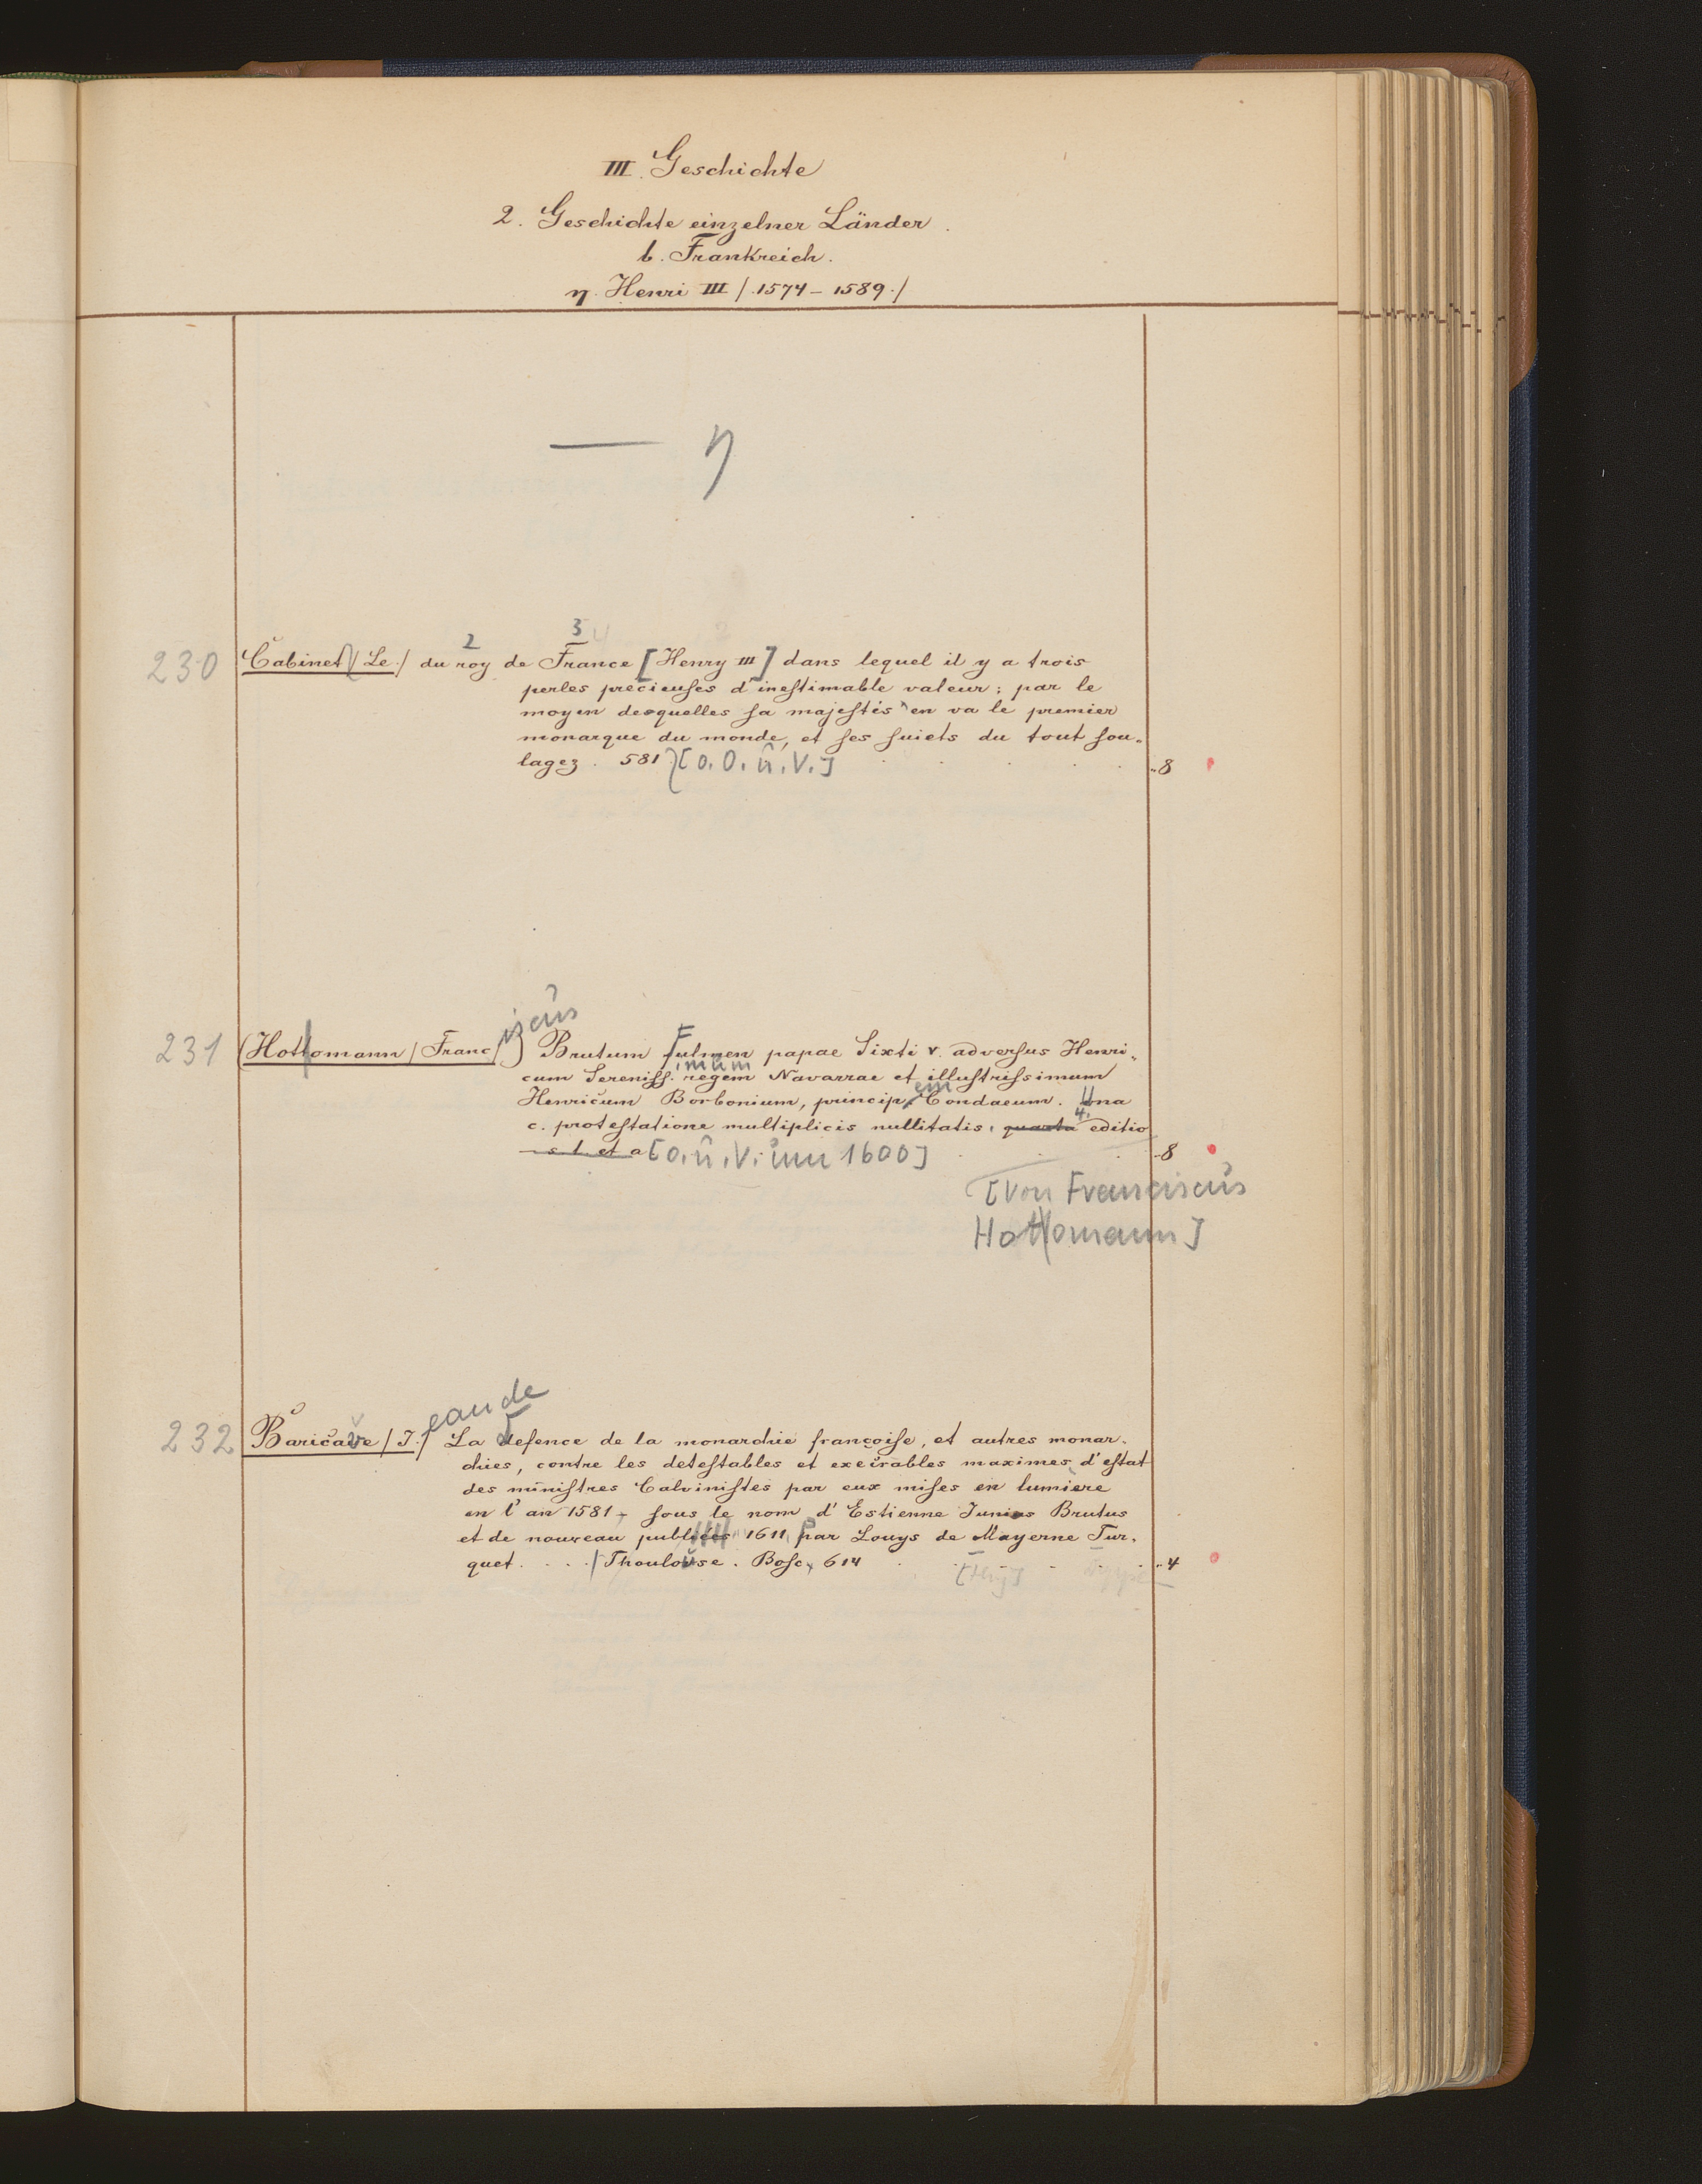 III. Geschichte
2. Geschichte einzelner Länder.
b. Frankreich.
η. Henri III /.1574 – 1589./
— η
2 3 4
230 Cabinet /Le./ du roy de France [Henry III] dans lequel il y a trois
perles precieuſes d'ineſtimable valeur; par le
moyen desquelles ſa majeſtés'en va le premier
monarque du monde, et ſes ſuiets du tout ſou-
lagez. 581 [o. O. u. V.] ..8
iscus
231 (Hottomann /Franc/) Brutum Fulmen papae Sixti V. adverſus Henri-
cum Sereniſſ.imum regem Navarrae et illuſtriſsimum
Henricum Borbonium, principem Condaeum. Una
c. proteſtatione multiplicis nullitatis, quarta 4. editio
s. l. et a [o. u. V. um 1600] ..8
[Von Franciscus
Hottomann]
ean de
232 Baricave /J./ La defence de la monarchie françoiſe, et autres monar-
chies, contre les deteſtables et execrables maximes d'eſtat
des miniſtres Calviniſtes par eux miſes en lumiere
en l'an 1581, ſous le nom d'Estienne Junius Brutus
et de nouveau publiées 1611 par Louys de Mayerne Tur-
quet. . . . / Thoulouse. Boſc, 614 ..4